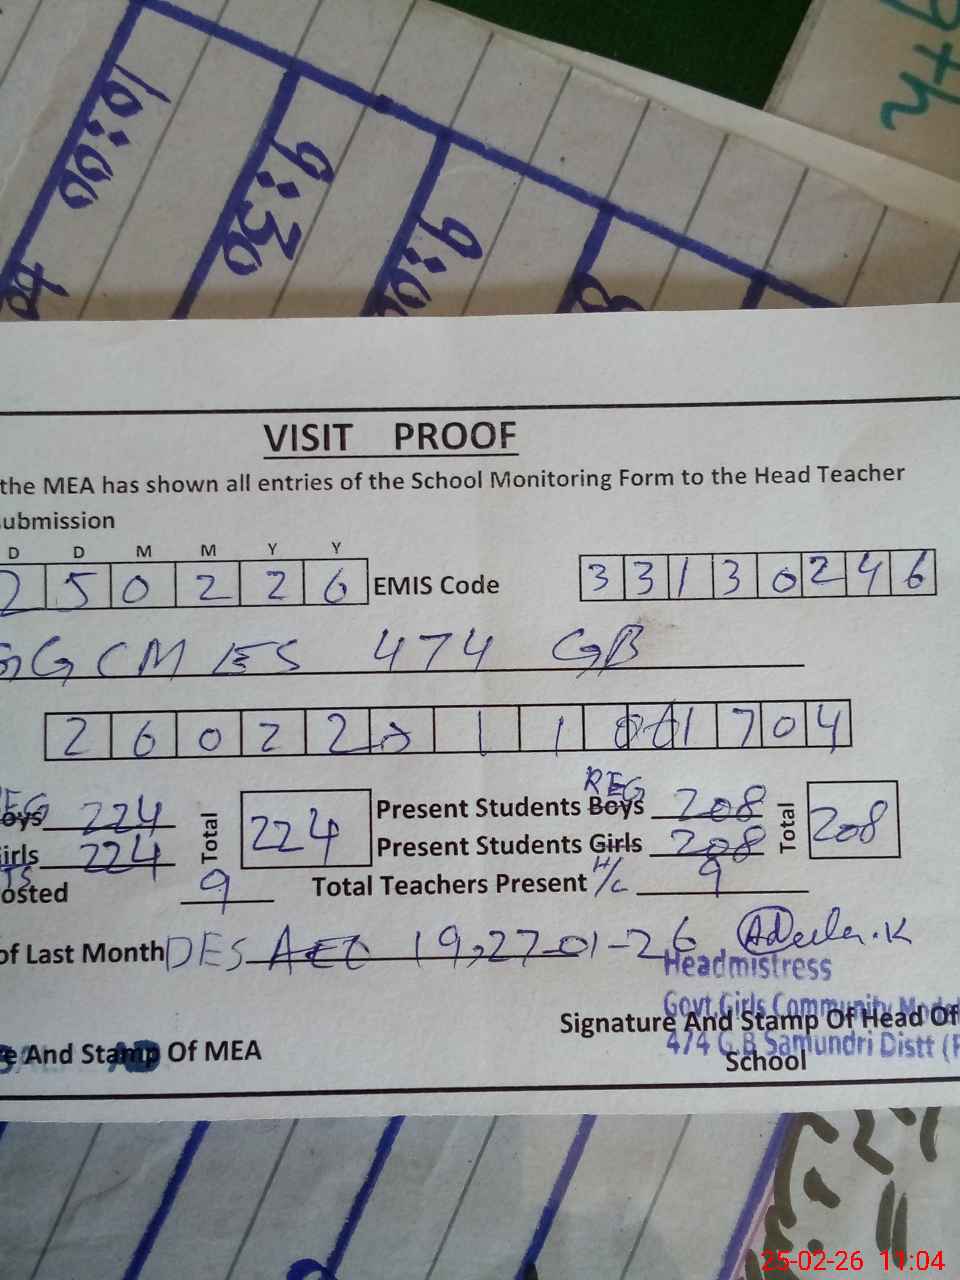 10:00
9:30
9:00
to
VISIT PROOF
the MEA has shown all entries of the School Monitoring Form to the Head Teacher
ubmission
D D M M Y Y
2 5 0 2 2 6 EMIS Code 3 3 1 3 0 2 4 6
GGCMES 474 GB
REG
Boys 224 Total 224 Present Students Boys 208 Total 208
irls 224 Present Students Girls 208
osted 9 Total Teachers Present 9
of Last Month DES AEO 19,27-01-26
Headmistress
Govt. Girls Community Model
474 G.B Samundri Distt (F
Signature And Stamp Of Head Of
School
e And Stamp Of MEA
25-02-26 11:04